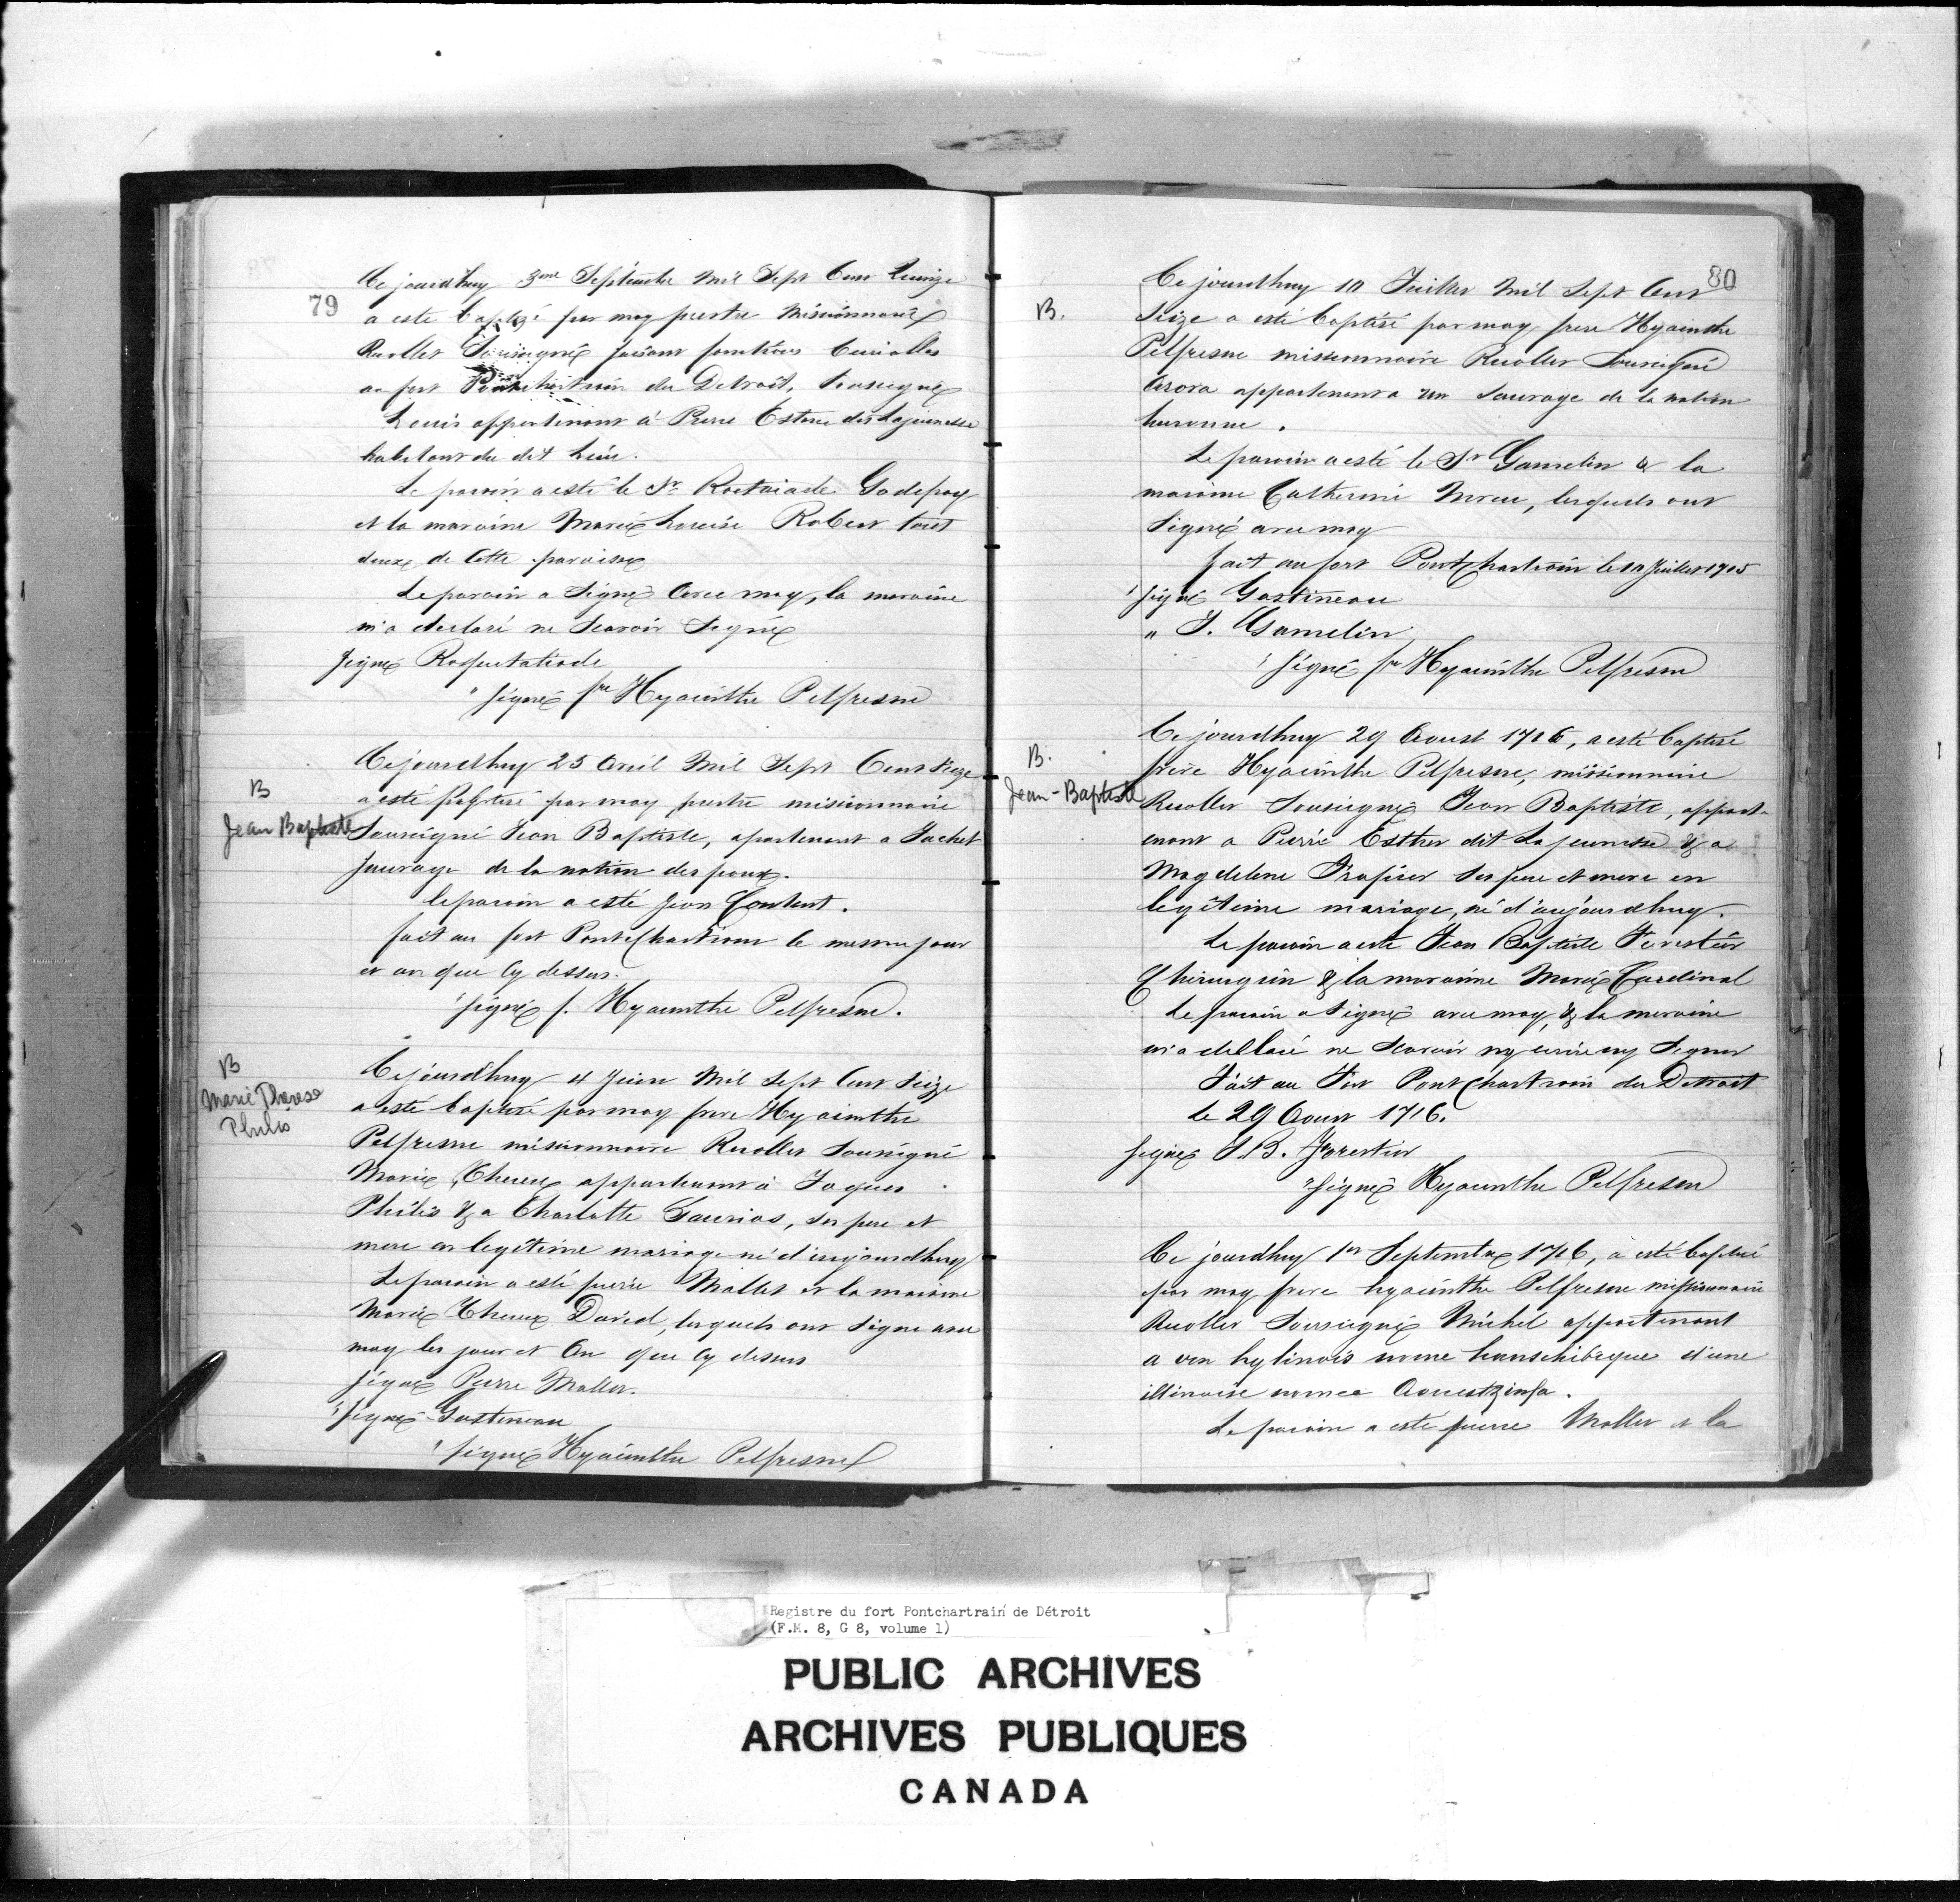 79
Cejourdhuy 3eme Septembre Mil Sept Cens Quinze
a este baptizé par moy prestre Missionnaire
Recollet Sousigné faisant fonctions Curialles
au fort Pontchartrain du Detroit, Sousigné
Louis appartenant à Pierre Esteve dit Lajeunesse
habitant du dit Lieu.
Le parain a esté le Sr Roctaiade Godefroy
et la maraine Marie Louise Robert tout
deux de Cette paroisse
Le parain a Signé Avec moy, la maraine
m'a declaré ne Scavoir Signé
Signé Roquetaliade
" Signé fre Hyacinthe Pelfresne
B
Jean Baptiste
Cejourdhuy 25 Avril Mil Sept Cens Seize
a esté baptisé par moy prestre missionnaire
Sousigné Jean Baptiste, apartenant a Jachet
Sauvage de la nation des poux.
le parain a esté Jean Contant.
fait au fort Pontchartrain le mesme jour
et an que Cy dessus.
" Signé f. Hyacinthe Pelfresne.
B
Marie Therese
Philis
Cejourdhuy 4 Juin Mil Sept Cens Seize
a esté baptisé par moy frere Hyacinthe
Pelfresne missionnaire Recollet Sousigné
Marie Therese appartenant à Jaques
Philis & a Charlotte Saurios, ses pere et
mere en legitime mariage né d'aujourdhuy
Le parain a esté pierre Mallet et la maraine
Marie Therese David, lesquels ont Signe avec
moy les jour et An que Cy dessus
Signé Pierre Mallet.
" Signé Gastineau
" Signé Hyacinthe Pelfresne
80
B.
Ce jourdhuy 10 Juillet Mil Sept Cens
Seize a esté baptisé par moy frere Hyacinthe
Pelfresne missionnaire Recollet Sousigné
appartenant a un Sauvage de la nation
huronne.
Le parain a esté le Sr Gamelin & la
maraine Catherine, lesquels ont
Signé avec moy
fait au fort Pontchartrain le 10 Juillet 1715
" Signé Gastineau
" J. Gamelin
" Signé fre Hyacinthe Pelfresne
B.
Jean-Baptiste
Ce jourdhuy 29 Aoust 1716, a esté baptisé
frere Hyacinthe Pelfresne, missionnaire
Recollet Sousigné Jean Baptiste, appart-
enant a Pierre Esther dit Lajeunesse & a
Magdelene Frapier ses pere et mere en
legitime mariage, né d'aujourdhuy.
Le parain a esté Jean Baptiste Forestier
Chirurgien & la maraine Marie Cardinal
Le parain a Signé avec moy, & la maraine
m'a declaré ne Scavoir ny ecrire ny Signer
Fait au Fort Pontchartrain du Detroit
le 29 Aoust 1716.
Signé J.B. Forestier
" Signé Hyacinthe Pelfresne
Ce jourdhuy 1er Septembre 1716, a esté baptisé
par moy frere hyacinthe Pelfresne missionnaire
Recollet Sousigné Michel appartenant
a un hylinois nomé d'une
illinoise nomée
Le parain a esté pierre Mallet et la
Registre du fort Pontchartrain de Détroit
(F.M. 8, G 8, volume 1)
PUBLIC ARCHIVES
ARCHIVES PUBLIQUES
CANADA